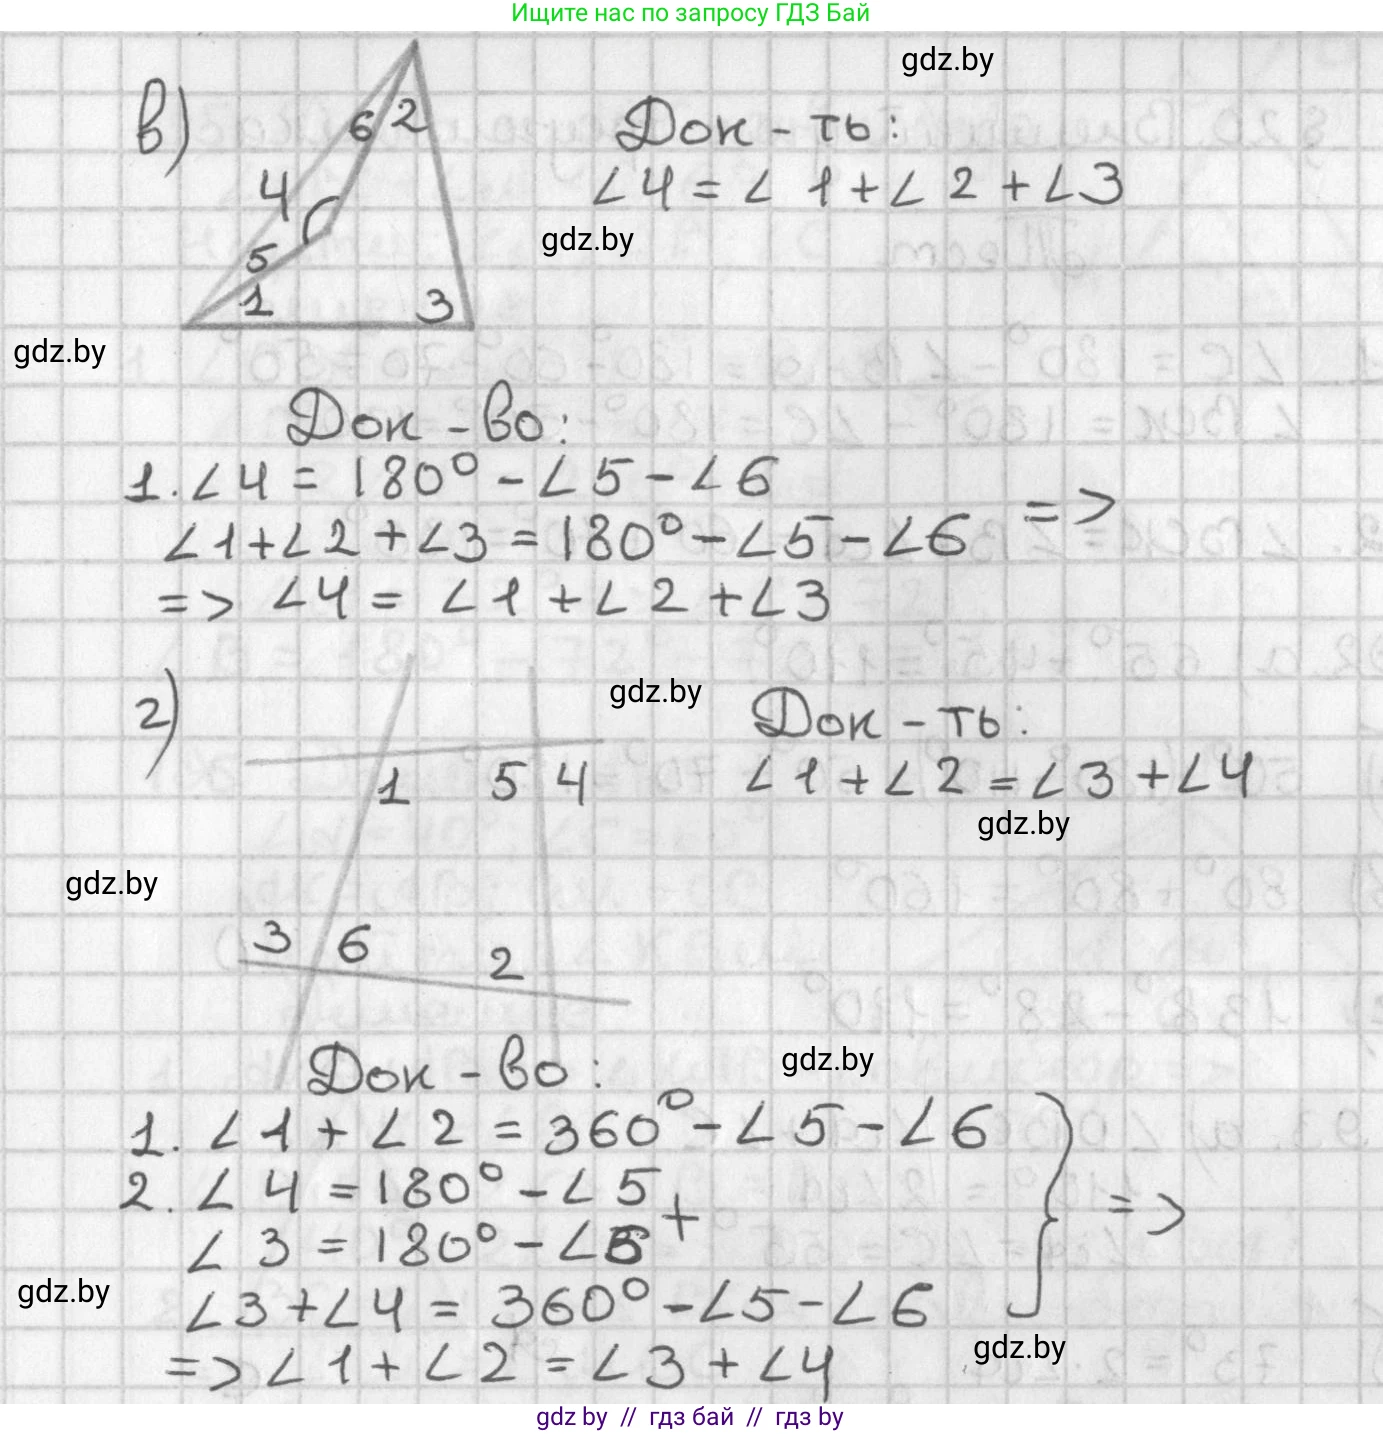 Ищите нас по запросу ГДЗ Бай
gdz.by
в)
6 2
4
5
1 3
Док - ть:
∠4 = ∠1 + ∠2 + ∠3
gdz.by
gdz.by
Док - во:
1. ∠4 = 180° - ∠5 - ∠6
∠1 + ∠2 + ∠3 = 180° - ∠5 - ∠6 =>
=> ∠4 = ∠1 + ∠2 + ∠3
г)
gdz.by
Док - ть:
1 5 4
∠1 + ∠2 = ∠3 + ∠4
gdz.by
gdz.by
3 6 2
Док - во:
gdz.by
1. ∠1 + ∠2 = 360° - ∠5 - ∠6
2. ∠4 = 180° - ∠5
+ =>
∠3 = 180° - ∠6
gdz.by
∠3 + ∠4 = 360° - ∠5 - ∠6
gdz.by
=> ∠1 + ∠2 = ∠3 + ∠4
gdz by // гдз бай // гдз by